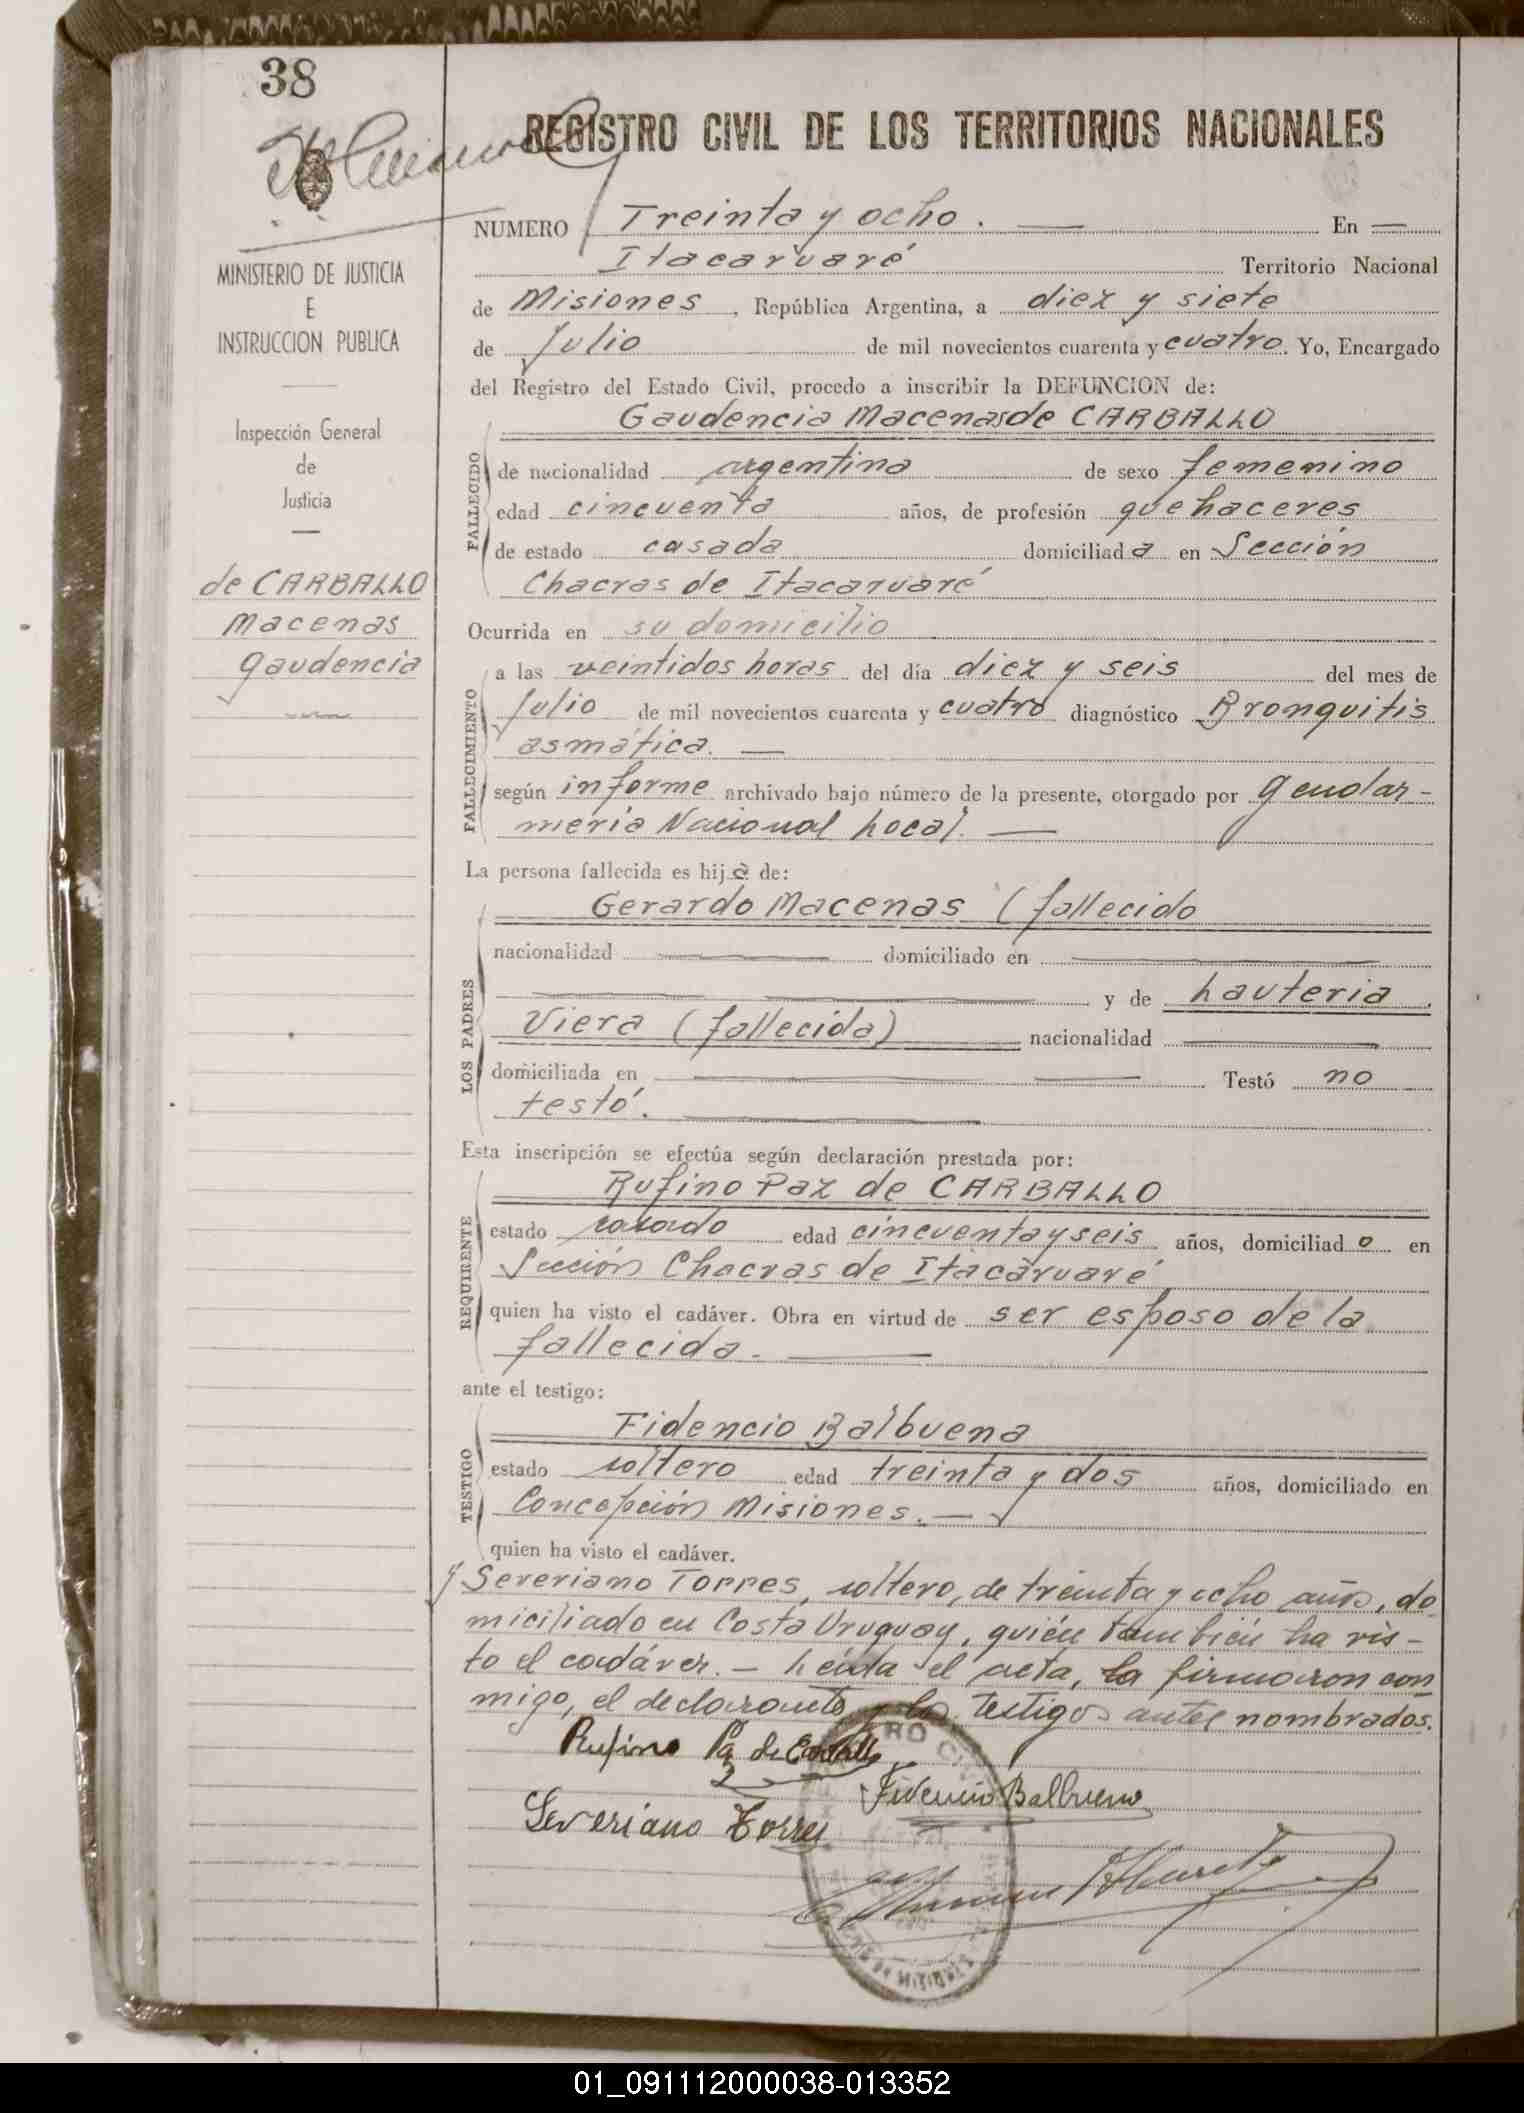 38
REGISTRO CIVIL DE LOS TERRITORIOS NACIONALES
NUMERO Treinta y ocho. — En —
Itacaruaré Territorio Nacional
de Misiones, República Argentina, a diez y siete
de Julio de mil novecientos cuarenta y cuatro. Yo, Encargado
del Registro del Estado Civil, procedo a inscribir la DEFUNCION de:
Gaudencia Macenas de CARBALLO
FALLECIDO
de nacionalidad argentina de sexo femenino
edad cincuenta años, de profesión quehaceres
de estado casada domiciliada en Sección
Chacras de Itacaruaré
Ocurrida en su domicilio
FALLECIMIENTO
a las veintidos horas del día diez y seis del mes de
Julio de mil novecientos cuarenta y cuatro diagnóstico Bronquitis
asmática. —
según informe archivado bajo número de la presente, otorgado por Gendar-
meria Nacional Local. —
La persona fallecida es hija de:
LOS PADRES
Gerardo Macenas (fallecido
nacionalidad — domiciliado en —
— — y de Lauteria
Viera (fallecida) nacionalidad —
domiciliada en — — Testó no
testó. —
Esta inscripción se efectúa según declaración prestada por:
REQUIRENTE
Rufino Paz de CARBALLO
estado casado edad cincuenta y seis años, domiciliado en
Sección Chacras de Itacaruaré
quien ha visto el cadáver. Obra en virtud de ser esposo de la
fallecida. —
ante el testigo:
TESTIGO
Fidencio Balbuena
estado soltero edad treinta y dos años, domiciliado en
Concepción Misiones. —
quien ha visto el cadáver.
y Severiano Torres, soltero, de treinta y ocho años, do
miciliado en Costa Uruguay, quién también ha vis-
to el cadáver. — Leida el acta, la firmaron con
migo, el declarante y los testigos antes nombrados.
Rufino Paz de Carballo
Fidencio Balbuena
Severiano Torres
MINISTERIO DE JUSTICIA
E
INSTRUCCION PUBLICA
Inspección General
de
Justicia
de CARBALLO
Macenas
Gaudencia
01_091112000038-013352